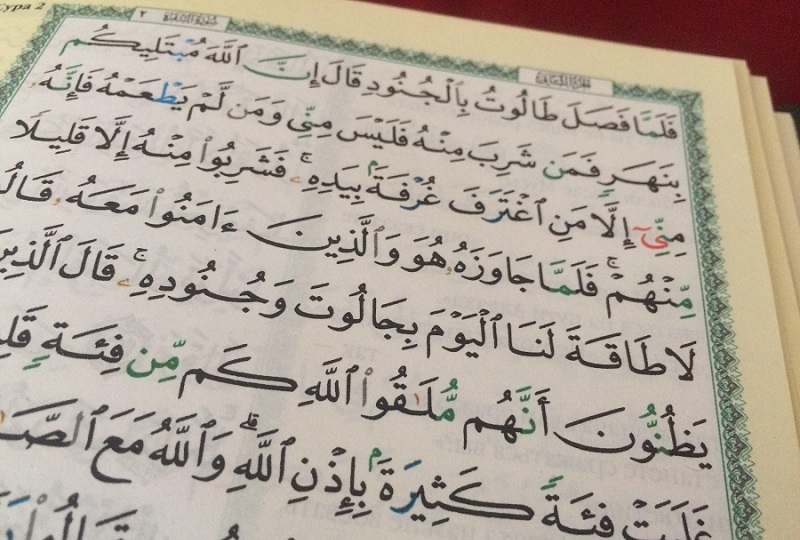 Сура 2
٢
فَلَمَّا فَصَلَ طَالُوتُ بِٱلْجُنُودِ قَالَ إِنَّ ٱللَّهَ مُبْتَلِيكُم
بِنَهَرٍ فَمَن شَرِبَ مِنْهُ فَلَيْسَ مِنِّي وَمَن لَّمْ يَطْعَمْهُ فَإِنَّهُۥ
مِنِّيٓ إِلَّا مَنِ ٱغْتَرَفَ غُرْفَةًۢ بِيَدِهِۦ ۚ فَشَرِبُوا۟ مِنْهُ إِلَّا قَلِيلًا
مِّنْهُمْ ۚ فَلَمَّا جَاوَزَهُۥ هُوَ وَٱلَّذِينَ ءَامَنُوا۟ مَعَهُۥ قَالُ
لَا طَاقَةَ لَنَا ٱلْيَوْمَ بِجَالُوتَ وَجُنُودِهِۦ ۚ قَالَ ٱلَّذِينَ
يَظُنُّونَ أَنَّهُم مُّلَٰقُوا۟ ٱللَّهِ كَم مِّن فِئَةٍ
غَلَبَتْ فِئَةً كَثِيرَةًۢ بِإِذْنِ ٱللَّهِ ۗ وَٱللَّهُ مَعَ